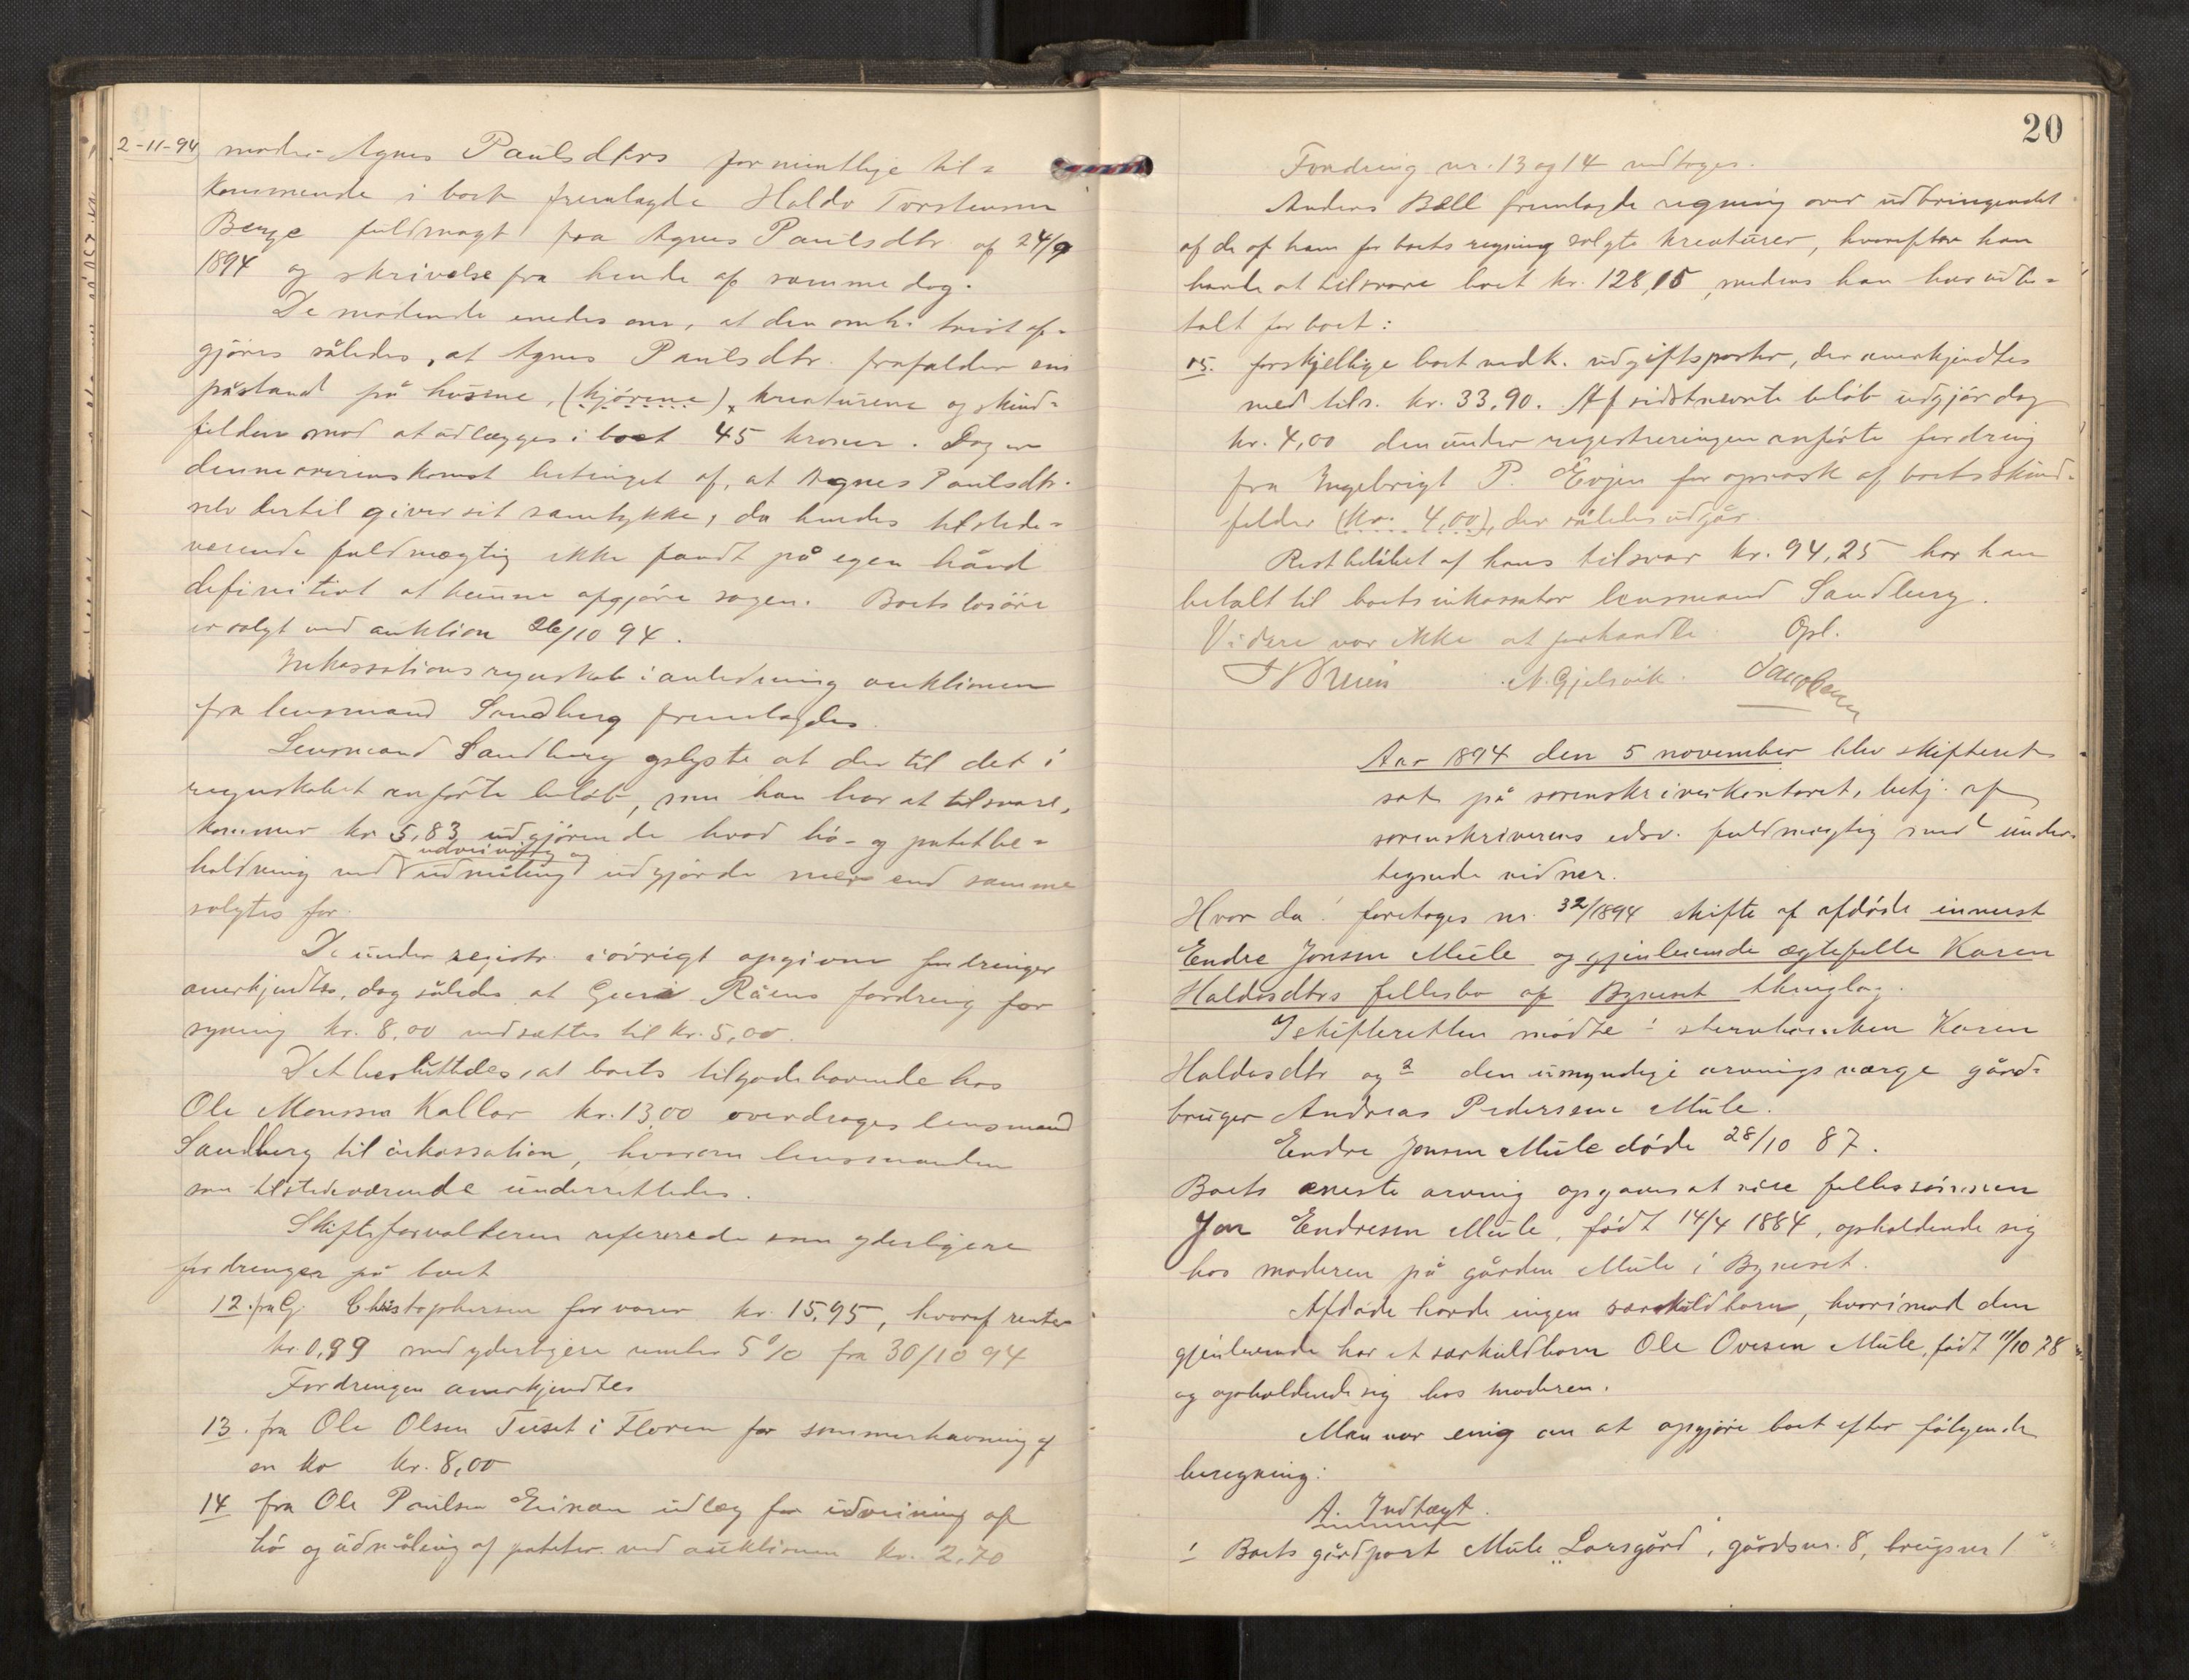 2-11-94
moder Agnes Paulsdtrs formentlige til-
kommende i boet fremlagde Haldo Torstensen
Berge fuldmagt fra Agnes Paulsdtr. af 24/9
1894 og skrivelse fra hende af samme dag.
De mødende enedes om, at den omh. tvist af-
gjøres således, at Agnes Paulsdtr. frafalder sin
påstand på husene, (kjørene), kreaturene og skind-
felden mod at udlægges i boet 45 kroner. Dog er
denne overenskomst betinget af, at Agnes Paulsdtr.
selv dertil giver sit samtykke, da hendes tilstede-
værende fuldmægtig ikke fandt på egen hånd
definitivt at kunne afgjøre sagen. Boets løsøre
er solgt ved auktion 26/10 94.
Inkassationsregnskab i anledning auktionen
fra lensmand Sandberg fremlagdes.
Lensmand Sandberg oplyste at der til det i
regnskabet anførte beløb, som han har at tilsvare,
kommer kr 5,83 udgjørende hvad hø- og potetbe-
udveining og
holdning ved udmåling udgjørde mer end samme
solgtes for.
De under registr. iøvrigt opgivne fordringer
anerkjendtes, dog således at Guri Råens fordring for
syning kr. 8,00 nedsættes til kr. 5,00.
Det besluttedes, at boets tilgodehavende hos
Ole Monsen Kallar kr. 13,00 overdrages lensmand
Sandberg til inkassation, hvorom lensmanden
som tilstedeværende underrettedes.
Skifteforvalteren refererede som yderligere
fordringer på boet
12. fra G. Christophersen for varer kr. 15,95, hvoraf renter
kr. 0,99 med yderligere renter 5% fra 30/10 94
Fordringen anerkjendtes
13. fra Ole Olsen Tuset i Floren for sommerhavning af
en ko kr. 8,00
14 fra Ole Paulsen udlæg for udveining af
hø og udmåling af poteter ved auktionen kr. 2,70
20
Fordring nr. 13 og 14 vedtoges.
Anders Ball fremlagde regning over udbringendet
af de af ham for boets regning solgte kreaturer, hvorefter han
havde at tilsvare boet kr. 128,15, medens han har udbe-
talt for boet:
15. forskjellige boet vedk. udgiftsposter, der anerkjendtes
med tils. kr. 33,90. Af sidstnevnte beløb udgjør dog
kr. 4,00 den under registreringen anførte fordring
fra Ingebrigt P. Evjen for opvask af boets skind-
felder (kr. 4,00), der således udgår.
Restbeløbet af hans tilsvar kr. 94,25 har han
betalt til boets inkassator lensmand Sandberg.
Videre var ikke at forhandle. Opl.
N. Gjelsvik. Jacobsen
Aar 1894 den 5 november blev skifteret
sat på sorenskriverkontoret, betj. af
sorenskriverens edsv. fuldmægtig med under-
tegnede vidner.
Hvor da: foretoges nr. 32/1894 skifte af afdøde innerst
Endre Jonsen Mule og gjenlevende ægtefelle Karen
Haldosdtrs fellesbo af Bynesset thinglag.
I skifteretten mødte 1 stervboenken Karen
Haldosdtr og 2 den umyndige arvings værge gård-
bruger Andreas Pedersen Mule.
Endre Jonsen Mule døde 28/10 87.
Boets eneste arving opgaves at være fellessønnen
Jon Endresen Mule, født 14/4 1884, opholdende sig
hos moderen på gården Mule i Byneset.
Afdøde havde ingen særskildbarn, hvorimod den
gjenlevende har et særkuldbarn Ole Ovesen Mule, født 11/10 78
og opholdende sig hos moderen.
Man var enig om at opgjøre boet efter følgende
beregning:
A. Indtægt.
1 Boets gårdpart Mule „Larsgård", gårdsnr. 8, brugsnr 1